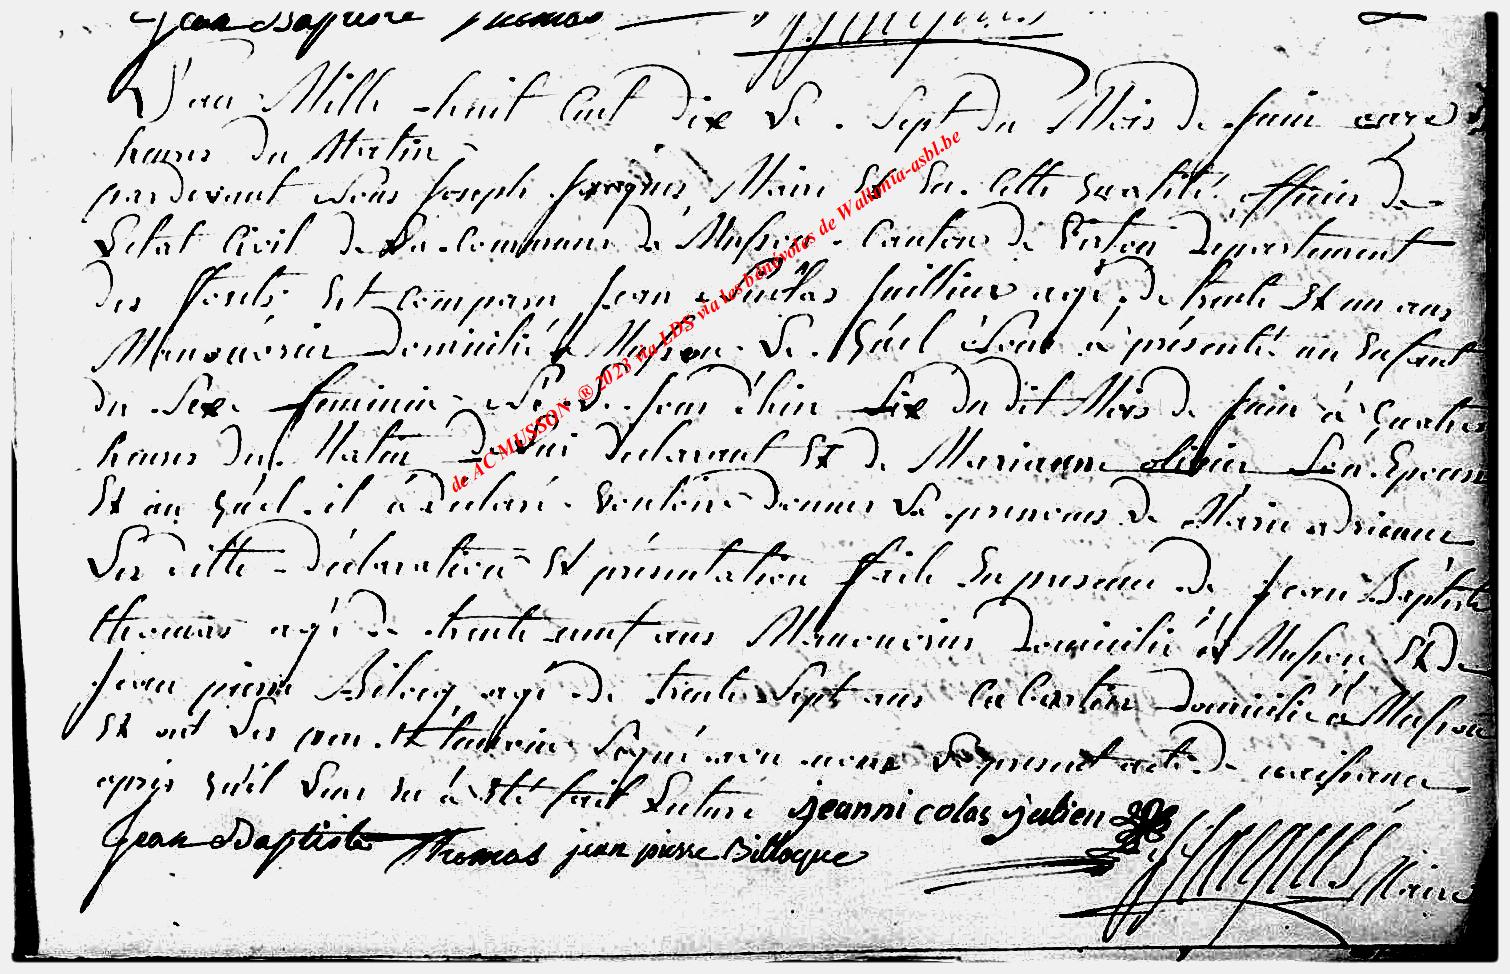 Jean Baptiste thomas
L'an Mille huit Cent dix Le Sept du Mois de Juin onze
heures du Matin
pardevant Nous Joseph Jacques Maire Et En Cette qualité officier de
Letat Civil de La Commune de Musson Canton de Virton Departement
des forets Est Comparu Jean Nicolas Juillien agé de trente Et un ans
Manouvrier domicilié a Musson Le quel Nous à présenté un Enfant
du Sexe feminin Née Le Jour d'hier Six du dit Mois de Juin à quatre
heures du Matin de Lui declarant Et de Marianne olivier Son Epouse
Et au quel il à declaré vouloire donner Le prenoms de Marie adrienne
Les ditte declaration Et présentation faite En presence de Jean Baptiste
thomas agé de trente neuf ans Manouvrier domicilié à Musson Et de
Jean pierre Bilocq agé de trente Sept ans Cabartier domicilié à Musson
Et ont Les pere Et temoins signé avec nous Le present acte de naissance
après qu'il Leur En à Eté fait Lecture jeannicolas julien
jean Baptiste thomas jean pierre Billocque J Jacques Maire
de AC MUSSON ® 2023 via LDS via les bénévoles de Wallonia-asbl.be